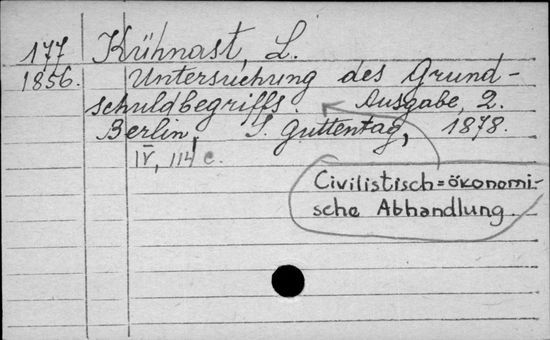 177 Kühnast, L.
1856. Untersuchung des Grund-
schuldbegriffs. Ausgabe, 2.
Berlin, J. Guttentag, 1878.
IV, 114 c.
Civilistisch=ökonomi-
sche Abhandlung.